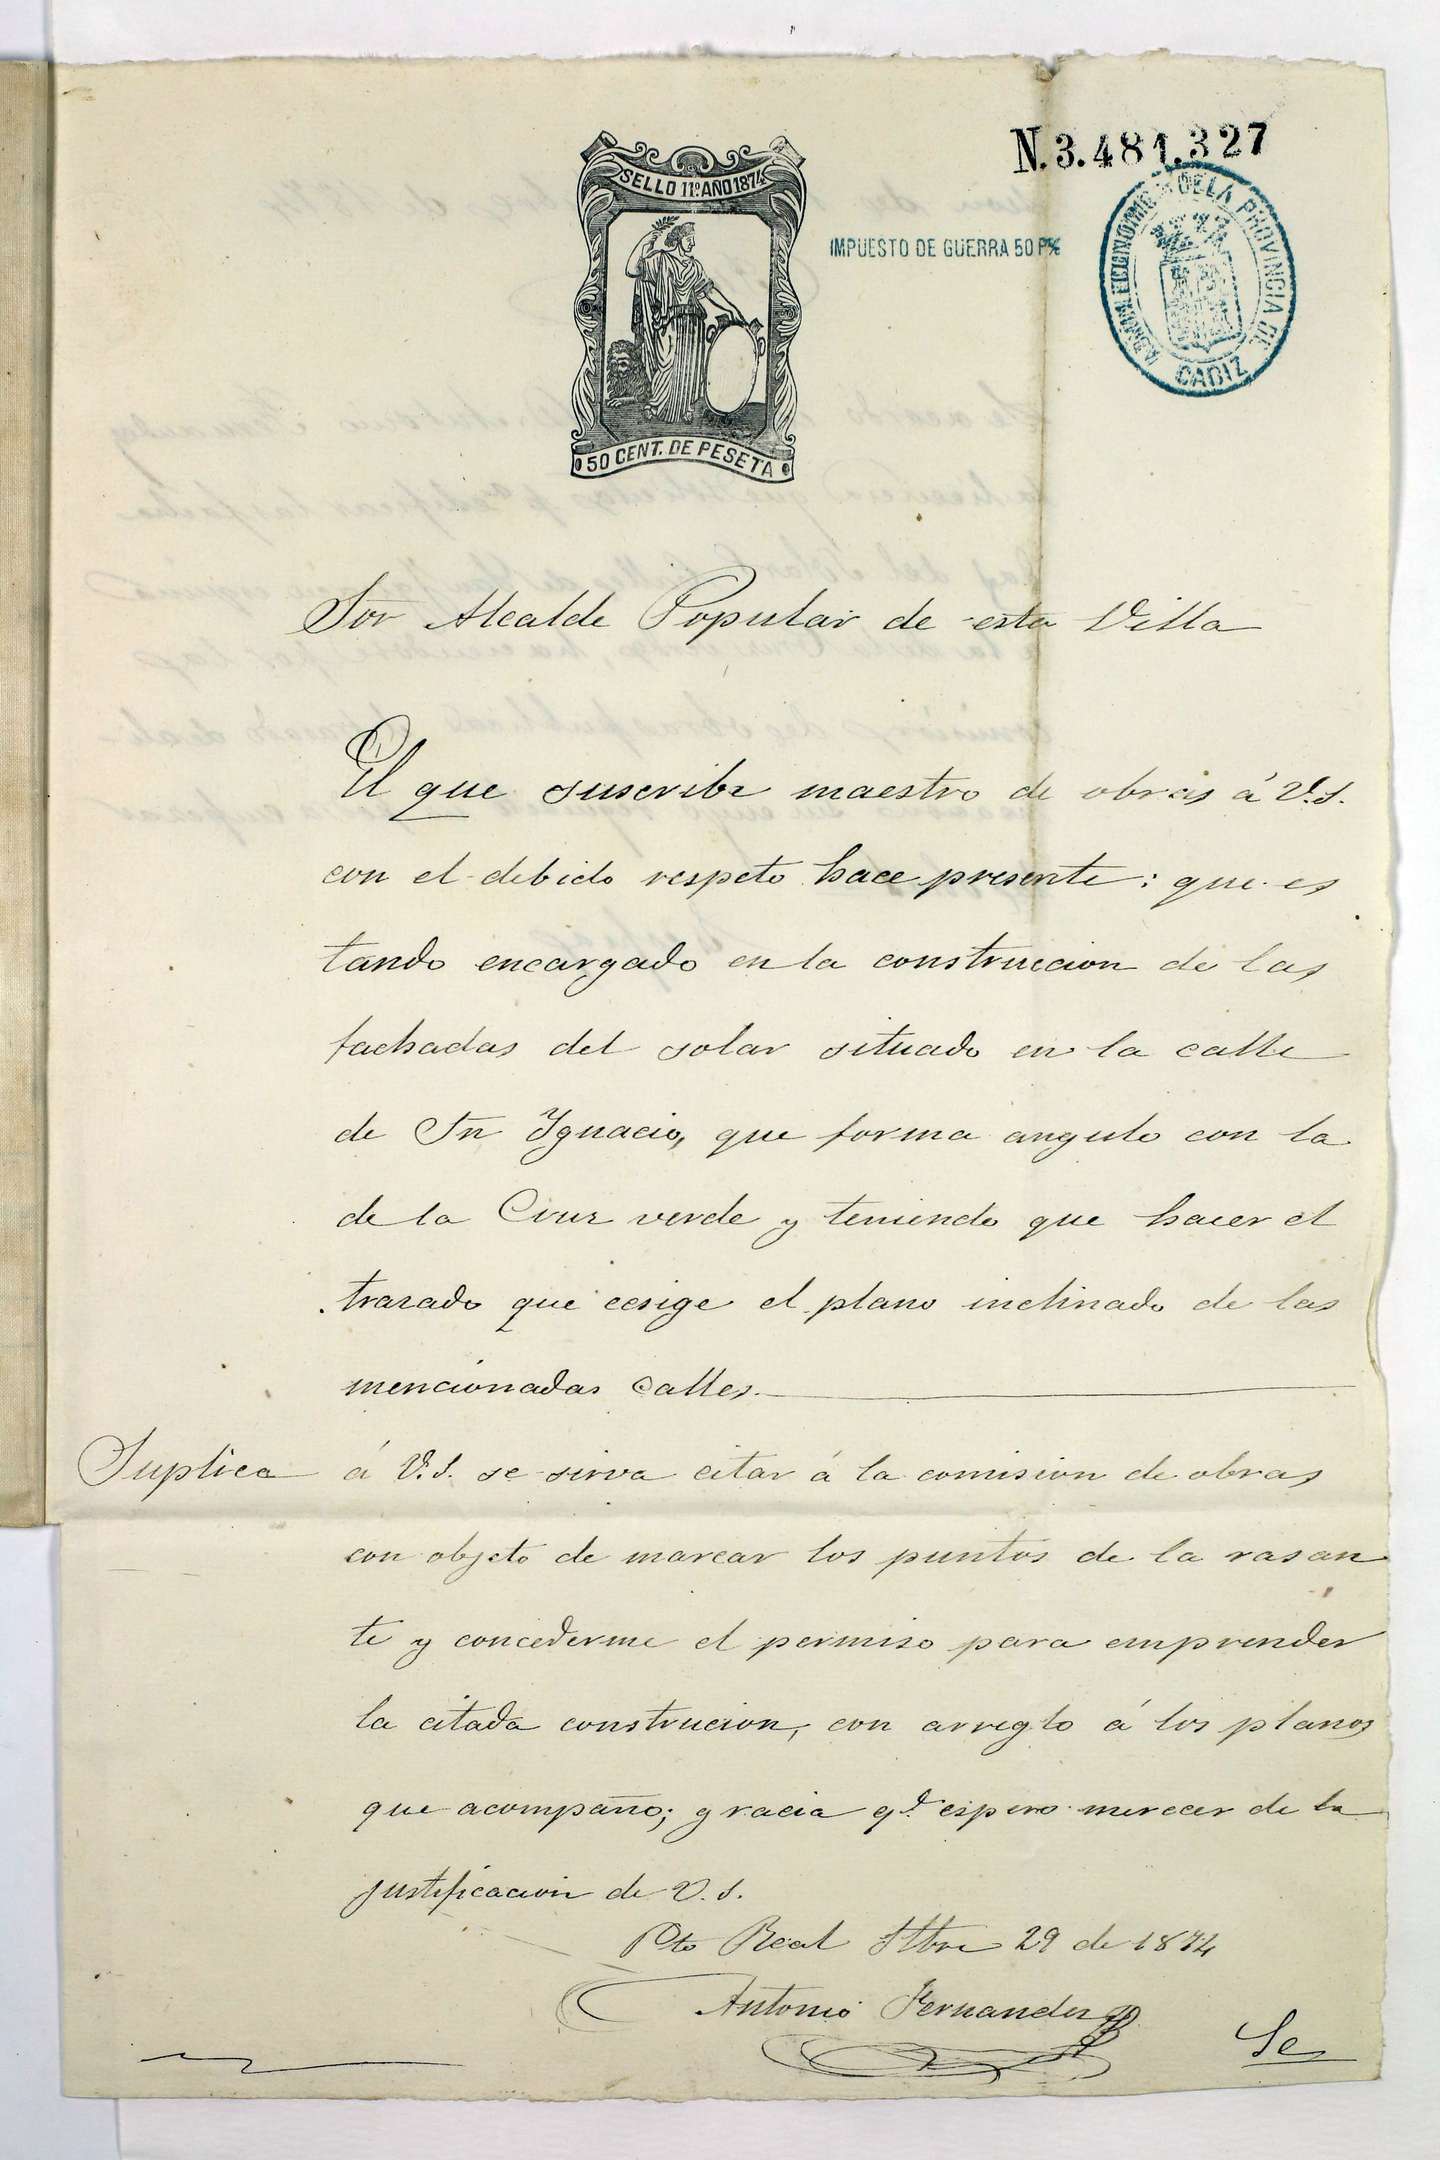 N. 3.481.327
SELLO 11º AÑO 1874
IMPUESTO DE GUERRA 50 P%
ADMON ECONOMICA DE LA PROVINCIA DE CADIZ
50 CENT. DE PESETA
Sor Alcalde Popular de esta Villa
El que suscribe maestro de obras á V.S.
con el debido respeto hace presente: que es
tando encargado en la construccion de las
fachadas del solar situado en la calle
de Sn Ignacio, que forma angulo con la
de la Cruz verde y teniendo que hacer el
trazado que ecsige el plano inclinado de las
mencionadas calles.
Suplica á V.S. se sirva citar á la comision de obras
con objeto de marcar los puntos de la rasan
te y concederme el permiso para emprender
la citada construcion, con arreglo á los planos
que acompaño; gracia qe. espero merecer de la
justificacion de V.S.
Pto Real Stbre 29 de 1874
Antonio Fernandez
Se